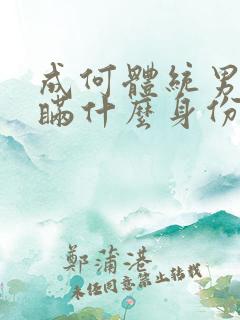 成何體統男
瞞什麼身份
鄭蒲港
未经同意禁止转载